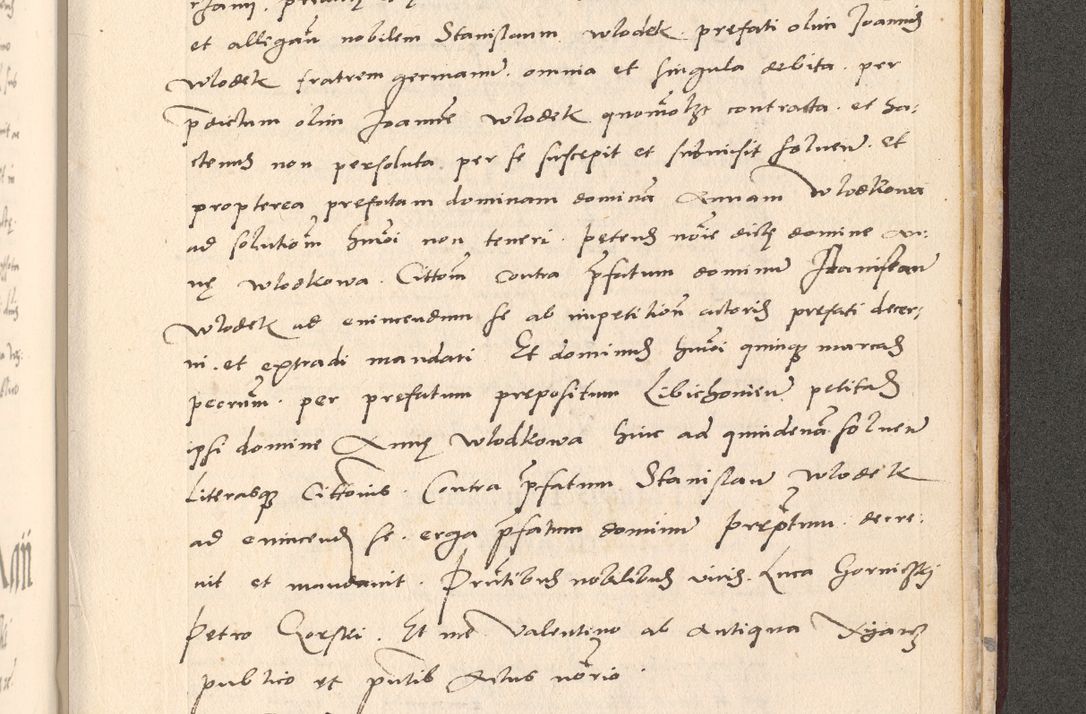 et alligavit nobilem Stanislaum Wlodek prefati olim Joannis
Wlodek fratrem germanum. omnia et singula debita per
p̄dictum olim Joannē Wlodek quomodolz contracta. et ha:
ctenus non persoluta per se suscepit et submisit soluere. et
propterea prefatam dominam dominā Annam Wlodkowa
ad solutiom̄ huiꝰmoi non teneri. petens noīe dictę domine An:
nę Wlodkowa. Cittōm contra p̄fatum dominū Stanislaū
Wlodek ad evincendum se ab impetitiōn actoris prefati decer:
ni. et extradi mandari Et dominus hmoi quinq marcas
pecunm̄. per prefatum prepositum Libichoniēn petitas
ipsi domine Annę Wlodkowa hinc ad quindenā soluere
literasq Cittōnis. Contra p̄fatum Stanislaū Wlodek
ad evincend se. erga p̄fatum dominū prep̄tum. decre:
uit et mandauit. Pr̄ntibus nobilibus viris. Luca Gorniczki
Petro Gorski. Et me Valentino ab Antiqua
publico et pn̄tis Actus notrio.